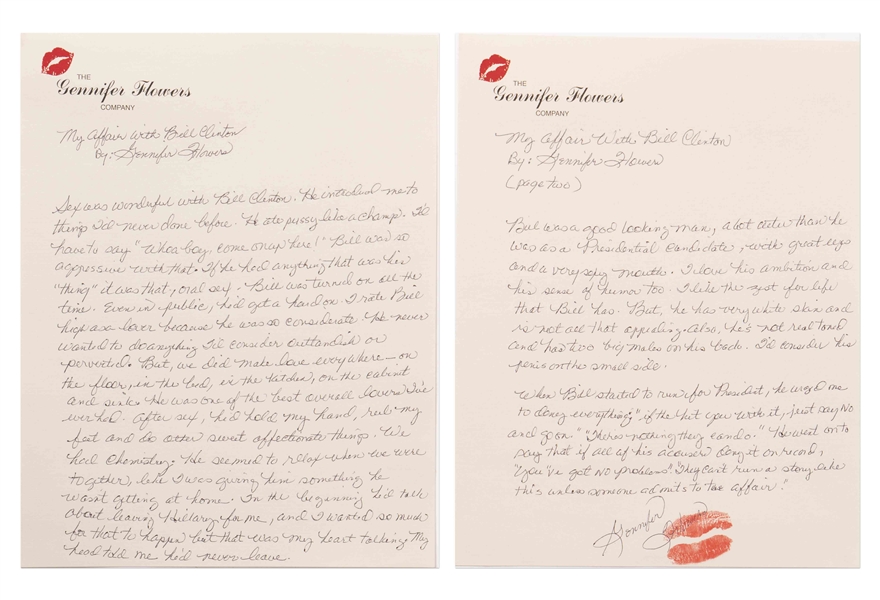 THE
Gennifer Flowers
COMPANY
My Affair with Bill Clinton
By: Gennifer Flowers
Sex was wonderful with Bill Clinton. He introduced me to
things I'd never done before. He ate pussy like a champ. I'd
have to say "Whoa boy, come on up here!" Bill was so
aggressive with that. If he had anything that was his
"thing" it was that, oral sex. Bill was turned on all the
time. Even in public, he'd get a hard on. I rate Bill
high as a lover because he was so considerate. He never
wanted to do anything I'd consider outlandish or
perverted. But, we did make love everywhere - on
the floor, in the bed, in the kitchen, on the cabinet
and sink. He was one of the best overall lovers I've
ever had. After sex, he'd hold my hand, rub my
feet and do other sweet affectionate things. We
had chemistry. He seemed to relax when we were
together, like I was giving him something he
wasn't getting at home. In the beginning he'd talk
about leaving Hillary for me, and I wanted so much
for that to happen but that was my heart talking. My
head told me he'd never leave.
THE
Gennifer Flowers
COMPANY
My Affair With Bill Clinton
By: Gennifer Flowers
(page two)
Bill was a good looking man, a lot cuter than he
was as a Presidential Candidate, with great legs
and a very sexy mouth. I love his ambition and
his sense of humor too. I like the zest for life
that Bill has. But, he has very white skin and
is not all that appealing. Also, he's not real toned
and has two big moles on his back. I'd consider his
penis on the small side.
When Bill started to run for President, he urged me
to deny everything; "if they hit you with it, just say NO
and go on" "There's nothing they can do." He went on to
say that if all of his accusers deny it on record,
"You've got No problems" They can't run a story like
this unless someone admits to the affair!
Gennifer